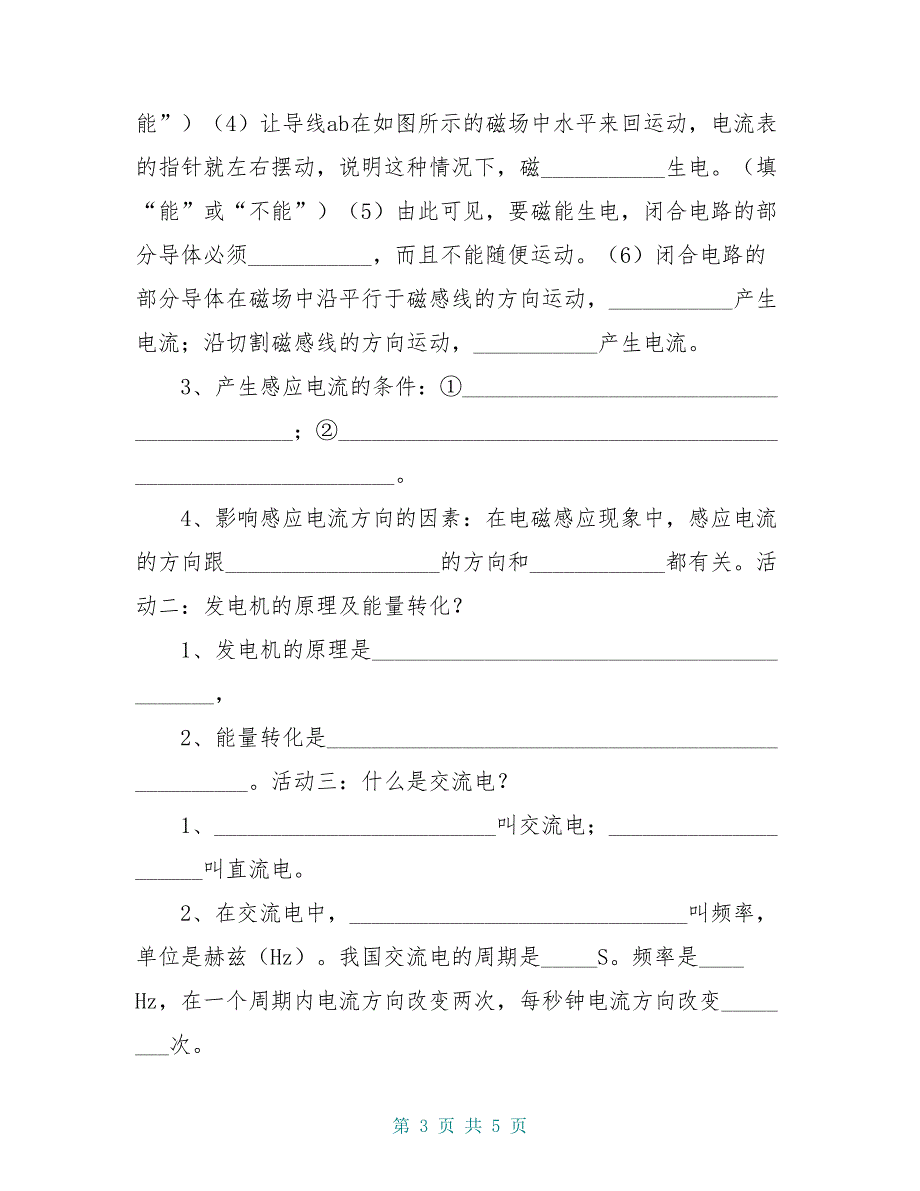 能”）（4）让导线ab在如图所示的磁场中水平来回运动，电流表
的指针就左右摆动，说明这种情况下，磁___________生电。（填
“能”或“不能”）（5）由此可见，要磁能生电，闭合电路的部
分导体必须___________，而且不能随便运动。（6）闭合电路的
部分导体在磁场中沿平行于磁感线的方向运动，___________产生
电流；沿切割磁感线的方向运动，___________产生电流。
3、产生感应电流的条件：①____________________________
______________；②_______________________________________
_______________________。
4、影响感应电流方向的因素：在电磁感应现象中，感应电流
的方向跟___________________的方向和____________都有关。活
动二：发电机的原理及能量转化？
1、发电机的原理是____________________________________
_______，
2、能量转化是________________________________________
__________。活动三：什么是交流电？
1、_________________________叫交流电；_______________
______叫直流电。
2、在交流电中，______________________________叫频率，
单位是赫兹（Hz）。我国交流电的周期是_____S。频率是____
Hz，在一个周期内电流方向改变两次，每秒钟电流方向改变_____
___次。
第 3 页 共 5 页